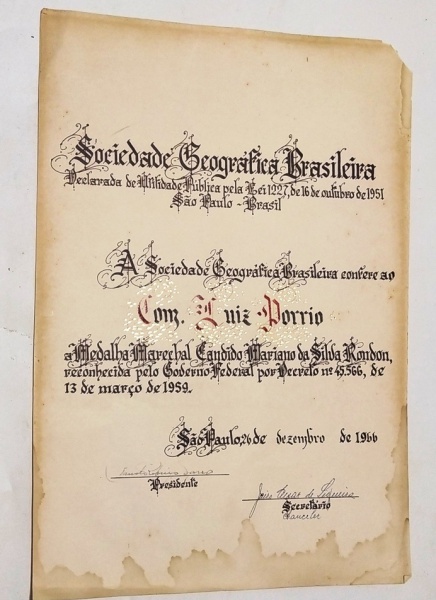 Sociedade Geográfica Brasileira
Declarada de Utilidade Pública pela Lei 1227, de 16 de outubro de 1951
São Paulo - Brasil
A Sociedade Geográfica Brasileira confere ao
Com. Luiz Porrio
a Medalha Marechal Candido Mariano da Silva Rondon,
reconhecida pelo Governo Federal por Decreto nº 45.566, de
13 de março de 1959.
São Paulo, 26 de dezembro de 1966
Presidente
Secretário
Chanceler